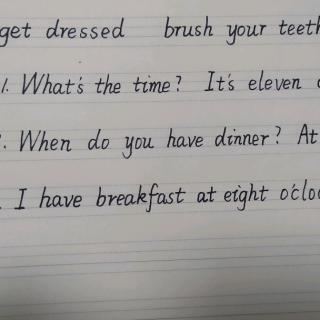 get dressed brush your teeth
1. What's the time? It's eleven
. When do you have dinner? At
. I have breakfast at eight o'clo